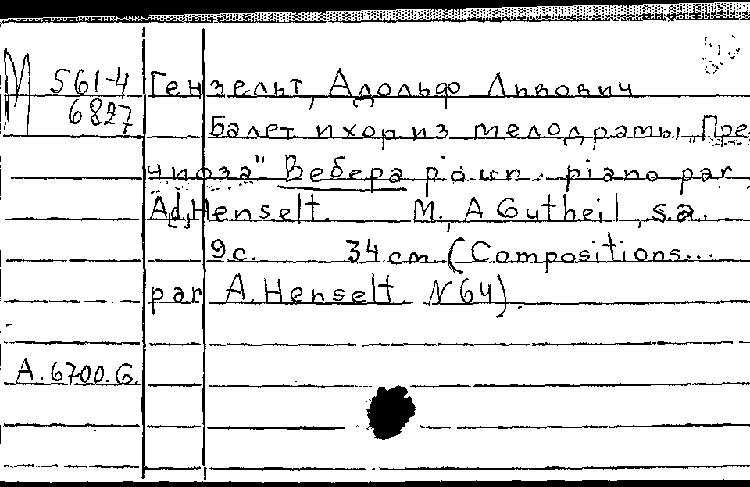 М 561-4
6827
Гензельт, Адольф Львович
Балет и хор из мелодрамы „Пре
циоза" Вебера pour piano par
Ad. Henselt М., A Gutheil, s.a.
9 с. 34 cm (Compositions...
par A. Henselt N 64).
A.6700.G.